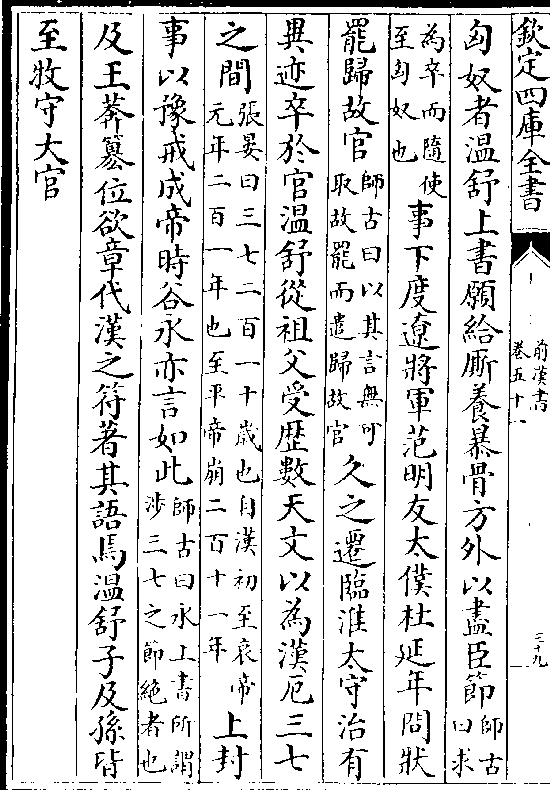 欽定四庫全書
前漢書
卷五十一
三十九
匈奴者温舒上書願給厮養暴骨方外以盡臣節師古曰求
為卒而隨使至匈奴也事下度遼將軍范明友太僕杜延年問狀
罷歸故官師古曰以其言無可取故罷而遣歸故官久之遷臨淮太守治有
異迹卒於官温舒從祖父受歴數天文以為漢厄三七
之間張晏曰三七二百一十歳也自漢初至哀帝元年二百一年也至平帝崩二百十一年上封
事以豫戒成帝時谷永亦言如此師古曰永上書所謂涉三七之節絶者也
及王莽簒位欲章代漢之符著其語焉温舒子及孫皆
至牧守大官